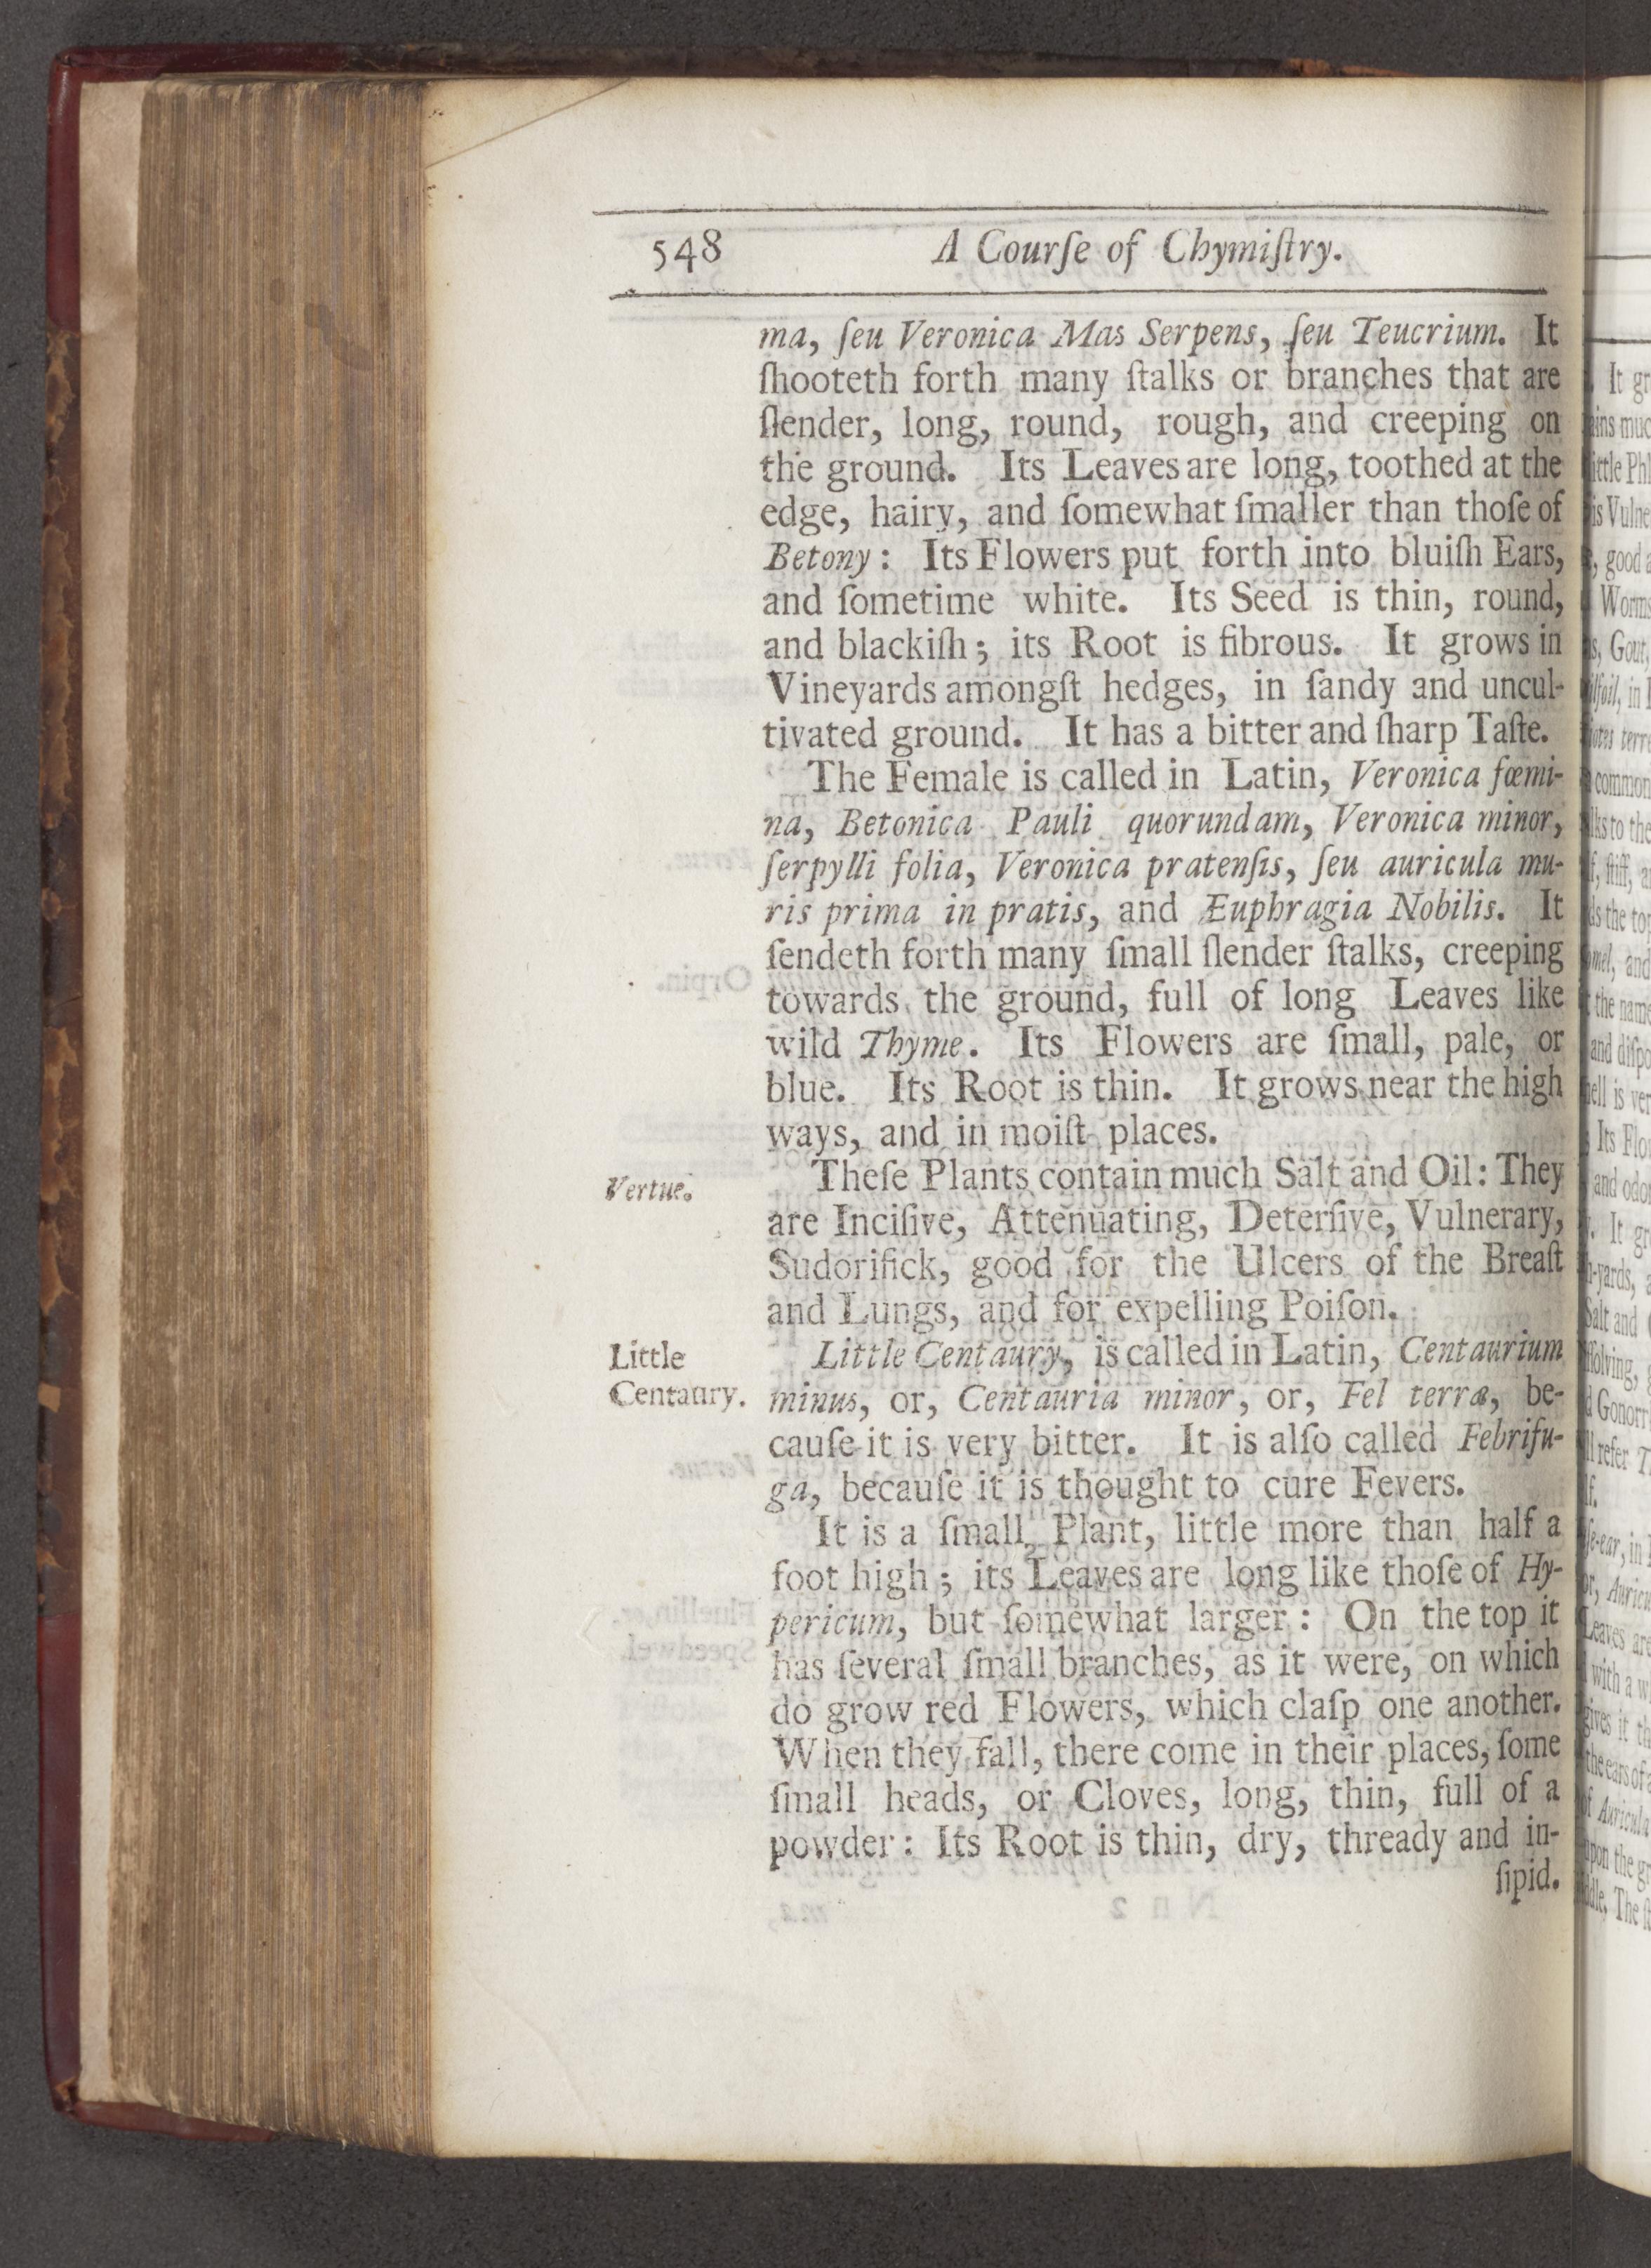 548 A Courſe of Chymiſtry.
ma, ſeu Veronica Mas Serpens, ſeu Teucrium. It
ſhooteth forth many ſtalks or branches that are
ſlender, long, round, rough, and creeping on
the ground. Its Leaves are long, toothed at the
edge, hairy, and ſomewhat ſmaller than thoſe of
Betony: Its Flowers put forth into bluiſh Ears,
and ſometime white. Its Seed is thin, round,
and blackiſh; its Root is fibrous. It grows in
Vineyards amongſt hedges, in ſandy and uncul-
tivated ground. It has a bitter and ſharp Taſte.
The Female is called in Latin, Veronica fœmi-
na, Betonica Pauli quorundam, Veronica minor,
ſerpylli folia, Veronica pratenſis, ſeu auricula mu-
ris prima in pratis, and Euphragia Nobilis. It
ſendeth forth many ſmall ſlender ſtalks, creeping
towards the ground, full of long Leaves like
wild Thyme. Its Flowers are ſmall, pale, or
blue. Its Root is thin. It grows near the high
ways, and in moiſt places.
Vertue. Theſe Plants contain much Salt and Oil: They
are Inciſive, Attenuating, Deterſive, Vulnerary,
Sudorifick, good for the Ulcers of the Breaſt
and Lungs, and for expelling Poiſon.
Little Little Centaury, is called in Latin, Centaurium
Centaury. minus, or, Centauria minor, or, Fel terræ, be-
cauſe it is very bitter. It is alſo called Febrifu-
ga, becauſe it is thought to cure Fevers.
It is a ſmall Plant, little more than half a
foot high; its Leaves are long like thoſe of Hy-
pericum, but ſomewhat larger: On the top it
has ſeveral ſmall branches, as it were, on which
do grow red Flowers, which claſp one another.
When they fall, there come in their places, ſome
ſmall heads, or Cloves, long, thin, full of a
powder: Its Root is thin, dry, thready and in-
ſipid.